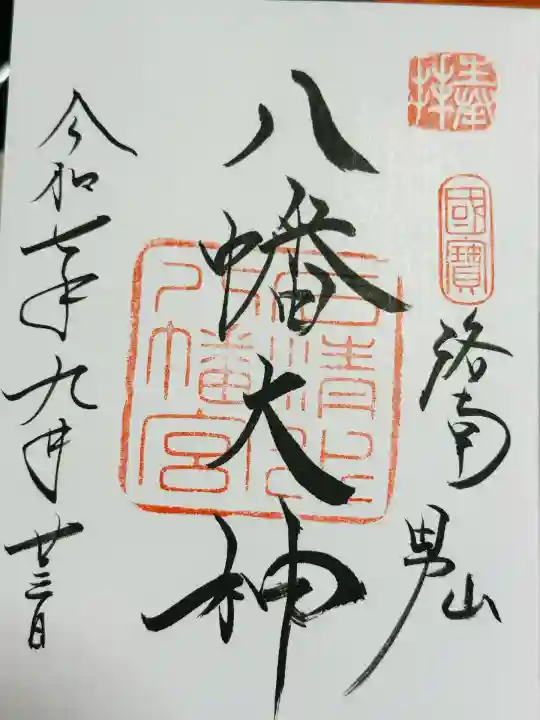 奉拝
國寶
洛南 男山
八幡大神
石清水八幡宮
令和七年九月廿三日